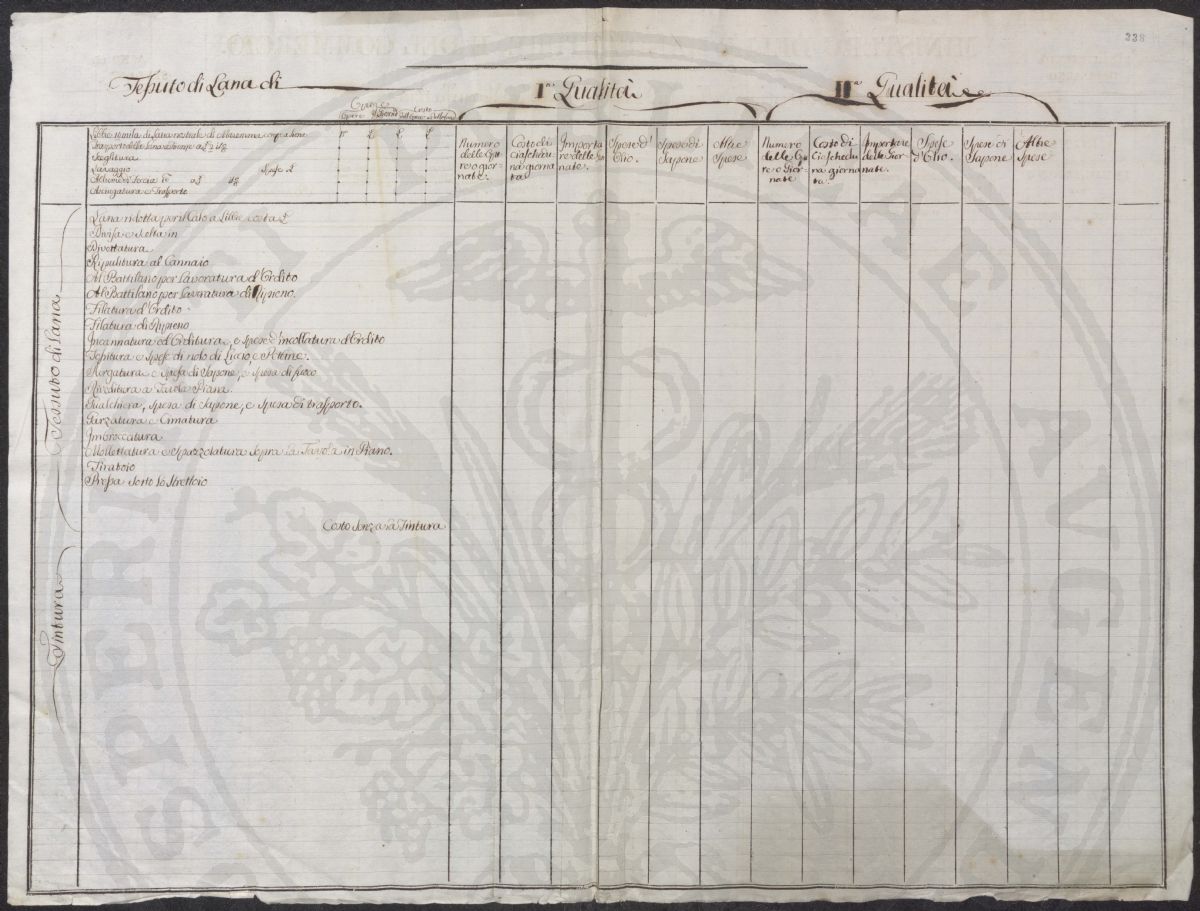 338
Tessuto di Lana di
Iª Qualità
IIª Qualità
Opere
Costo
Libbre 10 mila di Lana nostrale di Maremma
Trasporto della Lana a Firenze
Sceglitura
Lavaggio Spese £
Asciugatura e Trasporto
Numero delle Opere o Giornate.
Costo di Ciascheduna giornata
Importare delle Giornate.
Spese d'Olio.
Spese di Sapone
Altre Spese
Numero delle Opere o Giornate
Costo di Ciascheduna giornata.
Importare delle Giornate.
Spese d'Olio.
Spese di Sapone
Altre Spese
Tessuto di Lana
Lana ridotta per il Calo a Libbre costa £
Divisa e Scelta in
Divettatura
Ripulitura al Cannaio
Al Battilano per Lavoratura d'Ordito
Al Battilano per Lavoratura di Ripieno.
Filatura d'Ordito
Filatura di Ripieno
Incannatura ed Orditura, e Spese d'incollatura d'Ordito
Tessitura e Spese di nolo di Liccio, e Pettine.
Purgatura e Spesa di Sapone, e Spesa di fuoco
Riveditura a Tavola Piana
Gualchiera, Spesa di Sapone, e Spesa di trasporto.
Garzatura e Cimatura
Imbroccatura
Mollettatura e Spazzolatura sopra la Tavola in Piano.
Tiratoio
Pressa sotto lo Strettoio
Costo senza la Tintura
Tintura